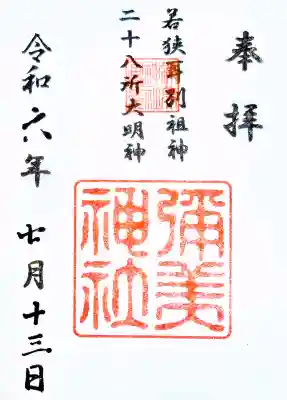 奉拝
若狭耳別祖神
二十八所大明神
彌美
神社
令和六年 七月十三日